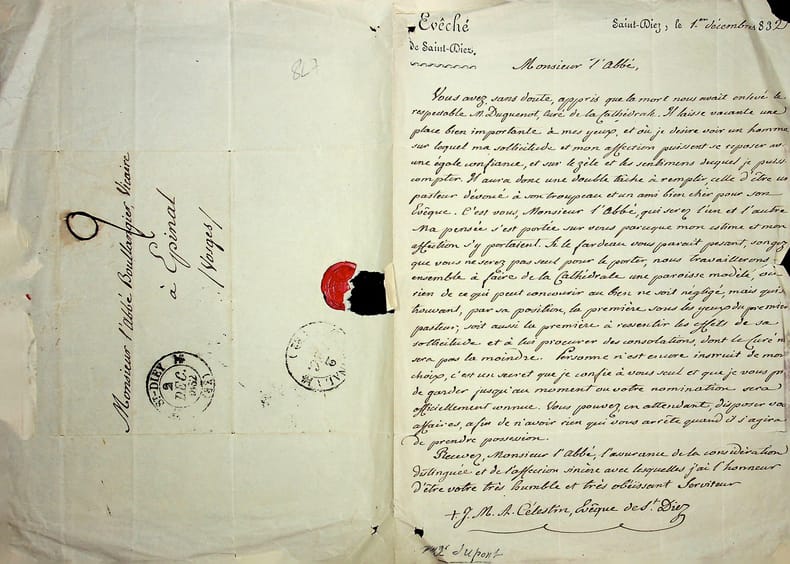 847
Monsieur l'Abbé Boullangier, Vicaire
à Epinal
(Vosges)
ST-DIEY
2
DEC.
1832
Evêché
de Saint-Diez.
Saint-Diez, le 1er décembre 1832
Monsieur l'Abbé,
Vous avez, sans doute, appris que la mort nous avait enlevé le
respectable M. Duguenot, curé de la Cathédrale. Il laisse vacante une
place bien importante à mes yeux, et où je désire voir un homme
sur lequel ma sollicitude et mon affection puissent se reposer avec
une égale confiance, et sur le zèle et les sentimens duquel je puisse
compter. Il aura donc une double tâche à remplir, celle d'être un
pasteur dévoué à son troupeau et un ami bien cher pour son
Evêque. C'est vous, Monsieur l'Abbé, qui serez l'un et l'autre
Ma pensée s'est portée sur vous parceque mon estime et mon
affection s'y portaient. Si le fardeau vous parait pesant, songez
que vous ne serez pas seul pour le porter, nous travaillerons
ensemble à faire de la Cathédrale une paroisse modèle, où
rien de ce qui peut concourir au bien ne soit négligé, mais qui
trouvant, par sa position, la première sous les yeux du premier
pasteur, soit aussi la première à ressentir les effets de sa
sollicitude et à lui procurer des consolations, dont le Curé n
sera pas la moindre. Personne n'est encore instruit de mon
choix, c'est un secret que je confie à vous seul et que vous pri
de garder jusqu'au moment où votre nomination sera
officiellement connue. Vous pouvez en attendant, disposer vos
affaires, afin de n'avoir rien qui vous arrête quand il s'agira
de prendre possession.
Recevez, Monsieur l'Abbé, l'assurance de la considération
distinguée et de l'affection sincère avec lesquelles j'ai l'honneur
d'être votre très humble et très obéissant Serviteur
+ J. M. A. Célestin, Evêque de St. Diez
dupont